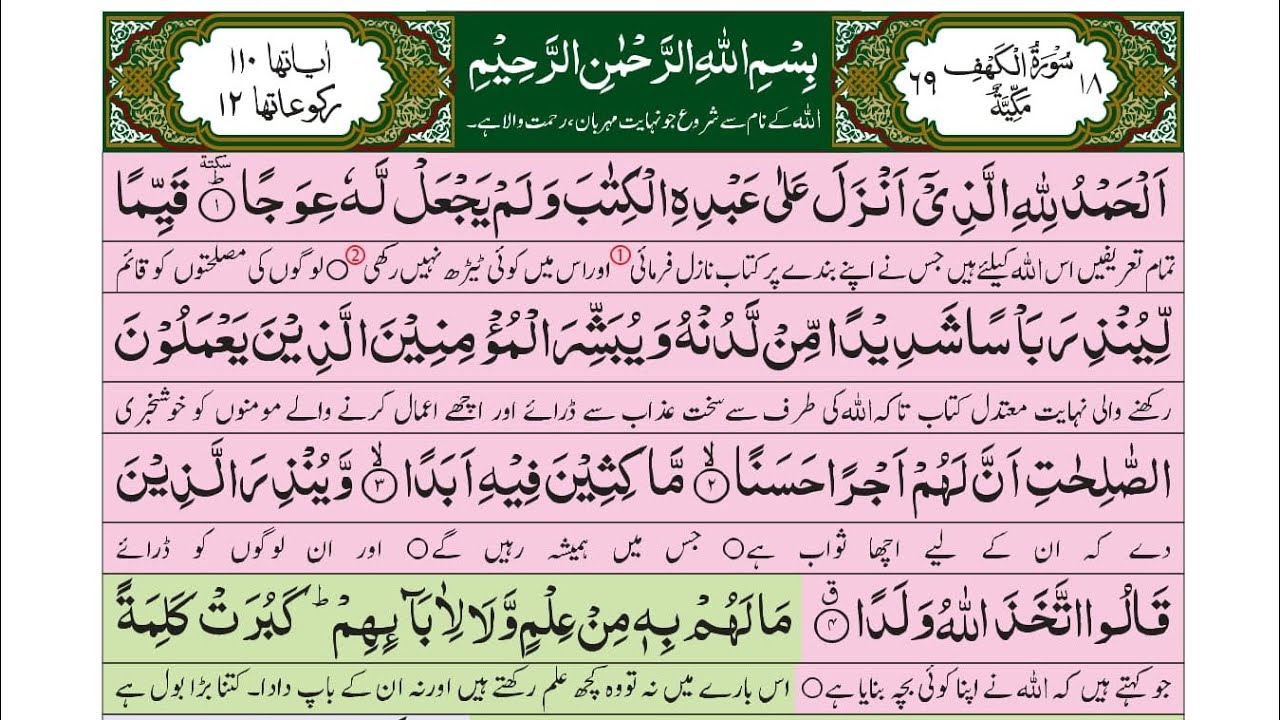 ١٨ سُوْرَةُ الْكَهْفِ مَكِّيَّةٌ ٦٩
بِسْمِ اللهِ الرَّحْمٰنِ الرَّحِيْمِ
اللہ کے نام سے شروع جو نہایت مہربان، رحمت والا ہے۔
اٰیاتها ١١٠
رکوعاتها ١٢
اَلْحَمْدُ لِلّٰهِ الَّذِیْۤ اَنْزَلَ عَلٰى عَبْدِهِ الْكِتٰبَ وَ لَمْ یَجْعَلْ لَّهٗ عِوَجًا ؕ سكتة ۝١ قَیِّمًا
تمام تعریفیں اس اللہ کیلئے ہیں جس نے اپنے بندے پر کتاب نازل فرمائی ① اور اس میں کوئی ٹیڑھ نہیں رکھی ② ○ لوگوں کی مصلحتوں کو قائم
لِّیُنْذِرَ بَاْسًا شَدِیْدًا مِّنْ لَّدُنْهُ وَ یُبَشِّرَ الْمُؤْمِنِیْنَ الَّذِیْنَ یَعْمَلُوْنَ
رکھنے والی نہایت معتدل کتاب تاکہ اللہ کی طرف سے سخت عذاب سے ڈرائے اور اچھے اعمال کرنے والے مومنوں کو خوشخبری
الصّٰلِحٰتِ اَنَّ لَهُمْ اَجْرًا حَسَنًا ۙ۝٢ مَّاكِثِیْنَ فِیْهِ اَبَدًا ۙ۝٣ وَّ یُنْذِرَ الَّذِیْنَ
دے کہ ان کے لیے اچھا ثواب ہے ○ جس میں ہمیشہ رہیں گے ○ اور ان لوگوں کو ڈرائے
قَالُوا اتَّخَذَ اللهُ وَلَدًا ۗ۝٤ مَا لَهُمْ بِهٖ مِنْ عِلْمٍ وَّ لَا لِاٰبَآىِٕهِمْ ؕ كَبُرَتْ كَلِمَةً
جو کہتے ہیں کہ اللہ نے اپنا کوئی بچہ بنایا ہے ○ اس بارے میں نہ تو وہ کچھ علم رکھتے ہیں اور نہ ان کے باپ دادا۔ کتنا بڑا بول ہے